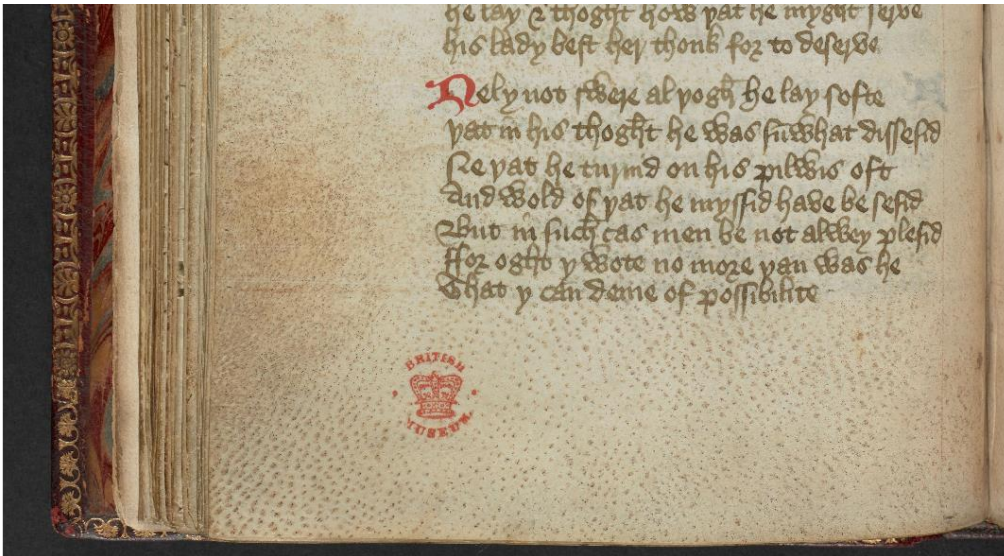 he lay & thoght how yat he myght serve
his lady best her thonk for to deserve
Nely not swere al yogh he lay softe
yat in his thoght he was sūwhat dissesid
Ne yat he turnid on his pilwis oft
And wold of yat he myssid have be sesid
But in such cas men be not alwey plesid
Ffor oght y wote no more yan was he
That y can deme of possibilite
BRITISH
MUSEUM